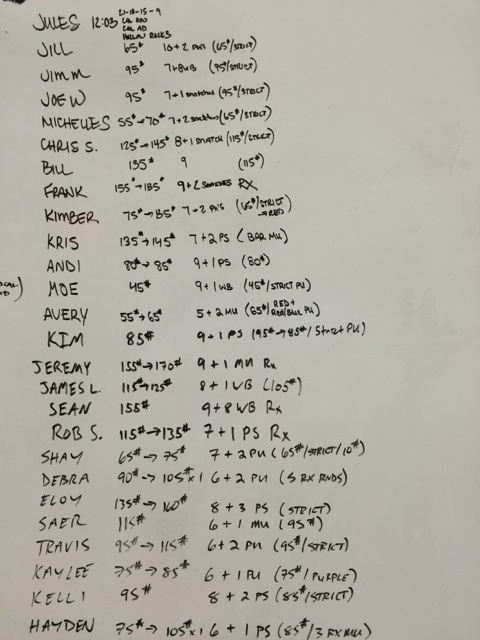 JULES 12:03 21-18-15-9
CAL ROW
CAL AD
HOLLOW ROCKS
JILL 65# 10+2 PU's (65#/STRICT)
JIM M 95# 7+8WB (95#/STRICT)
JOE W 95# 7+1 snatches (95#/STRICT)
MICHELLE S 55#→70# 7+2 snatches (65#/STRICT)
CHRIS S. 125#→145# 8+1 SNATCH (115#/STRICT)
BILL 135# 9 (115#)
FRANK 155#→185# 9+2 SNATCHES RX
KIMBER 75#→85# 7+2 PU's (65#/STRICT →RED)
KRIS 135#→145# 7+2 PS (BAR MU)
ANDI 80#→85# 9+1 PS (80#)
MOE 45# 9+1 WB (45#/STRICT PU)
AVERY 55#→65# 5+2 MU (65#/RED+ PU)
KIM 85# 9+1 PS (95#→85#/Strict PU)
JEREMY 155#→170# 9+1 MU Rx
JAMES L. 115#→125# 8+1 WB (105#)
SEAN 155# 9+8 WB Rx
ROB S. 115#→135# 7+1 PS Rx
SHAY 65#→75# 7+2 PU (65#/STRICT/10#)
DEBRA 90#→105#x1 6+2 PU (5 RX RNDS)
ELOY 135#→160# 8+3 PS (STRICT)
SAER 115# 6+1 MU (95#)
TRAVIS 95#→115# 6+2 PU (95#/STRICT)
KAYLEE 75#→85# 6+1 PU (75#/PURPLE)
KELLI 95# 8+2 PS (85#/STRICT)
HAYDEN 75#→105#x1 6+1 PS (85#/3 RX MU)